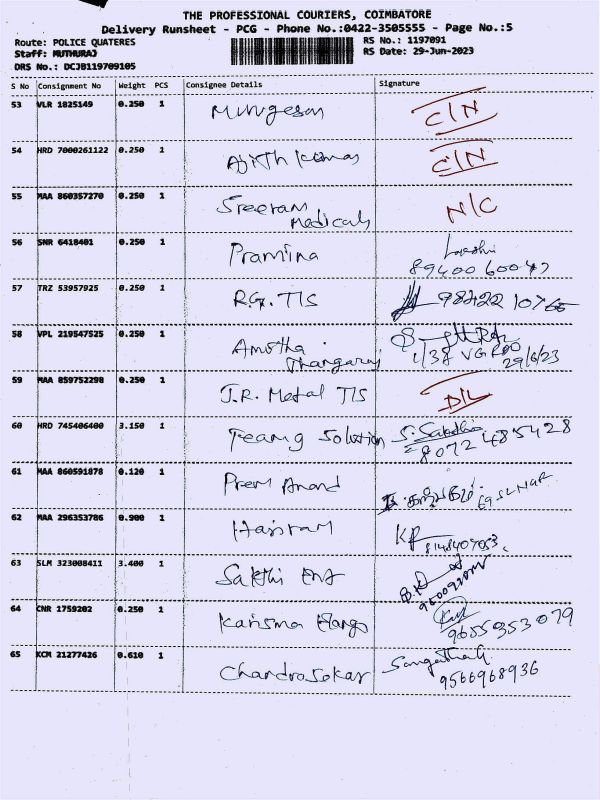 THE PROFESSIONAL COURIERS, COIMBATORE
Delivery Runsheet - PCG - Phone No.:0422-3505555 - Page No.:5
Route: POLICE QUATERES
RS No.: 1197091
Staff: MUTHURAJ
RS Date: 29-Jun-2023
DRS No.: DCJB119709105
S No Consignment No Weight PCS Consignee Details Signature
53 VLR 1825149 0.250 1 Murugesan C/N
54 HRD 7000261122 0.250 1 Ajith Kumar C/N
55 MAA 860357270 0.250 1 Sreeram Medicals N/C
56 SNR 6418401 0.250 1 Pramina
8940060047
57 TRZ 53957925 0.250 1 R.G. TIS
58 VPL 219547525 0.250 1 Amutha
Thangaraj 1/38 29/6/23
59 MAA 859752298 0.250 1 J.R. Metal TIS D/L
60 HRD 745406400 3.150 1 Teamg Solution
8072485428
61 MAA 860591878 0.120 1 Prem Anand
62 MAA 296353786 0.900 1 Hairam KR
63 SLM 323008411 3.400 1 Sakthi Ent
64 CNR 1759202 0.250 1 Karisma Hangs
9655353079
65 KCM 21277426 0.610 1 Chandrasekar
9566968936